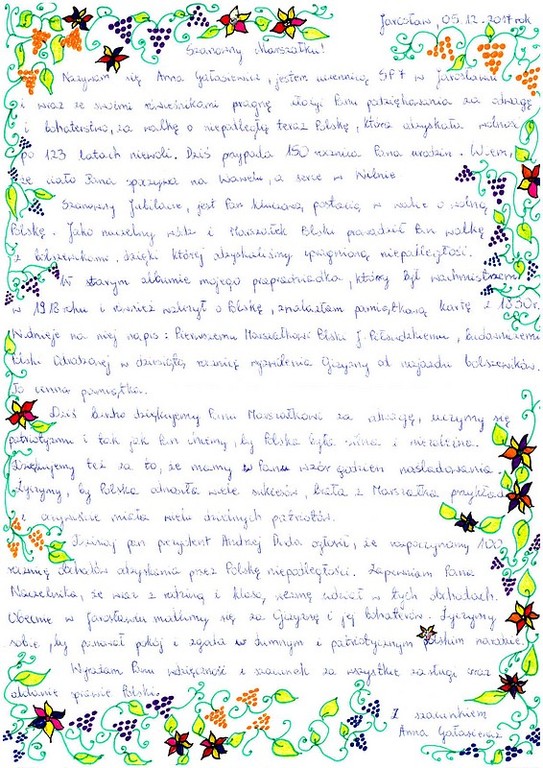 Jarosław, 05.12.2017 rok
Szanowny Marszałku!
Nazywam się Anna Gałasiewicz, jestem uczennicą SP 7 w Jarosławiu
i wraz ze swoimi rówieśnikami pragnę złożyć Panu podziękowania za odwagę
i bohaterstwo, za walkę o niepodległą teraz Polskę, która odzyskała wolność
po 123 latach niewoli. Dziś przypada 150 rocznica Pana urodzin. Wiem,
że ciało Pana spoczywa na Wawelu, a serce w Wilnie.
Szanowny Jubilacie, jest Pan kluczową postacią w walce o wolną
Polskę. Jako naczelny wódz i Marszałek Polski prowadził Pan walkę
z bolszewikami, dzięki której odzyskaliśmy upragnioną niepodległość.
W starym albumie mojego prapradziadka, który był wachmistrzem
w 1918 roku i również walczył o Polskę, znalazłam pamiątkową kartę z 1930 r.
Widnieje na niej napis: Pierwszemu Marszałkowi Polski J. Piłsudskiemu, budowniczemu
Polski Odrodzonej w dziesiątą rocznicę wyzwolenia Ojczyzny od najazdu bolszewików.
To cenna pamiątka.
Dziś bardzo dziękujemy Panu Marszałkowi za odwagę, uczymy się
patriotyzmu i tak jak Pan chcemy, by Polska była silna i niezależna.
Dziękujemy też za to, że mamy w Panu wzór godzien naśladowania.
Życzymy, by Polska odnosiła wiele sukcesów, brała z Marszałka przykład
i oczywiście miała wielu dzielnych patriotów.
Dzisiaj pan prezydent Andrzej Duda ogłosił, że rozpoczynamy 100
rocznicę obchodów odzyskania przez Polskę niepodległości. Zapewniam Pana
Naczelnika, że wraz z rodziną i klasą wezmę udział w tych obchodach.
Obecnie w Jarosławiu modlimy się za Ojczyznę i jej bohaterów. Życzymy
sobie, by panował pokój i zgoda w dumnym i patriotycznym polskim narodzie.
Wyrażam Panu wdzięczność i szacunek za wszystkie zasługi oraz
oddanie sprawie Polski.
Z szacunkiem
Anna Gałasiewicz